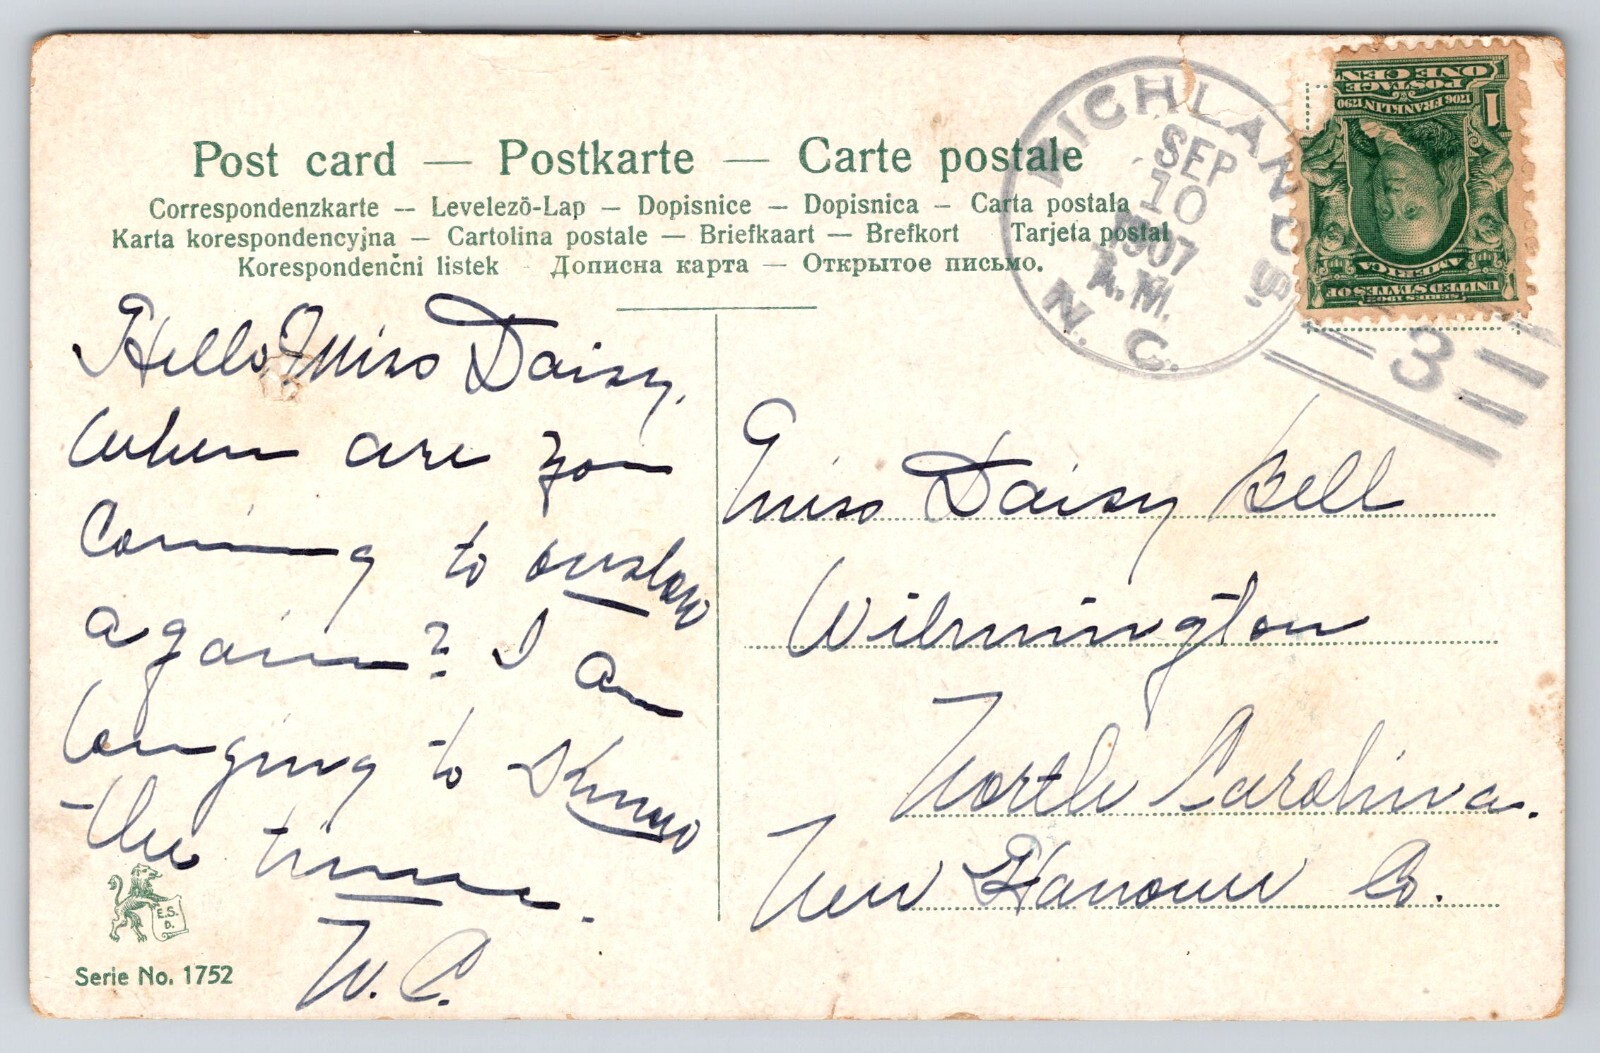 Post card — Postkarte — Carte postale
Correspondenzkarte — Levelezõ-Lap — Dopisnice — Dopisnica — Carta postala
Karta korespondencyjna — Cartolina postale — Briefkaart — Brefkort Tarjeta postal
Korespondenčni listek Дописна карта — Открытое письмо.
RICHLANDS.
SEP
10
1907
A.M.
N. C.
3
ONE CEN
POSTAGE
1706 FRANKLIN 1790
1
AMERICA
UNITED STATES OF
SERIES 1902
Hello, Miss Daisy,
When are you
Coming to onslow
again? I am
longing to Know
the time.
N. C.
Miss Daisy Bell
Wilmington
North Carolina.
New Hanover Co.
E.S.
D.
Serie No. 1752